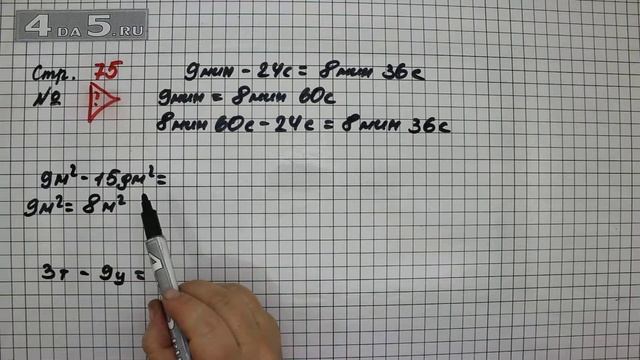 4 DA 5.RU
Стр. 75
№ 2
?
9мин - 24с = 8мин 36с
9мин = 8мин 60с
8мин 60с - 24с = 8мин 36с
9м² - 15дм² =
9м² = 8м²
3т - 9ц =